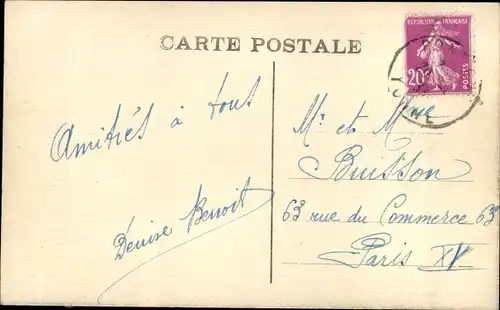 CARTE POSTALE
REPUBLIQUE FRANÇAISE
20c
POSTES
YONNE
Amitiés à tous
Denise Benoit
Mr et Mme
Buisson
63 rue du Commerce 63
Paris XV